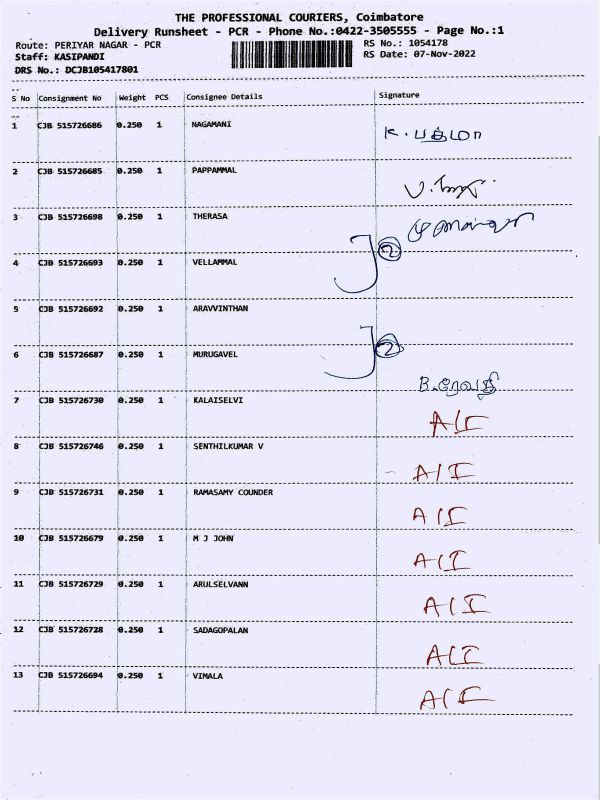 THE PROFESSIONAL COURIERS, Coimbatore
Delivery Runsheet - PCR - Phone No.:0422-3505555 - Page No.:1
Route: PERIYAR NAGAR - PCR RS No.: 1054178
Staff: KASIPANDI RS Date: 07-Nov-2022
DRS No.: DCJB105417801
S No Consignment No Weight PCS Consignee Details Signature
1 CJB 515726686 0.250 1 NAGAMANI K. பத்மா
2 CJB 515726685 0.250 1 PAPPAMMAL
3 CJB 515726698 0.250 1 THERASA
J 2
4 CJB 515726693 0.250 1 VELLAMMAL
5 CJB 515726692 0.250 1 ARAVVINTHAN
J 2
6 CJB 515726687 0.250 1 MURUGAVEL B.ரேவதி
7 CJB 515726730 0.250 1 KALAISELVI A/I
8 CJB 515726746 0.250 1 SENTHILKUMAR V A/I
9 CJB 515726731 0.250 1 RAMASAMY COUNDER A/I
10 CJB 515726679 0.250 1 M J JOHN A/I
11 CJB 515726729 0.250 1 ARULSELVANN A/I
12 CJB 515726728 0.250 1 SADAGOPALAN A/I
13 CJB 515726694 0.250 1 VIMALA A/I